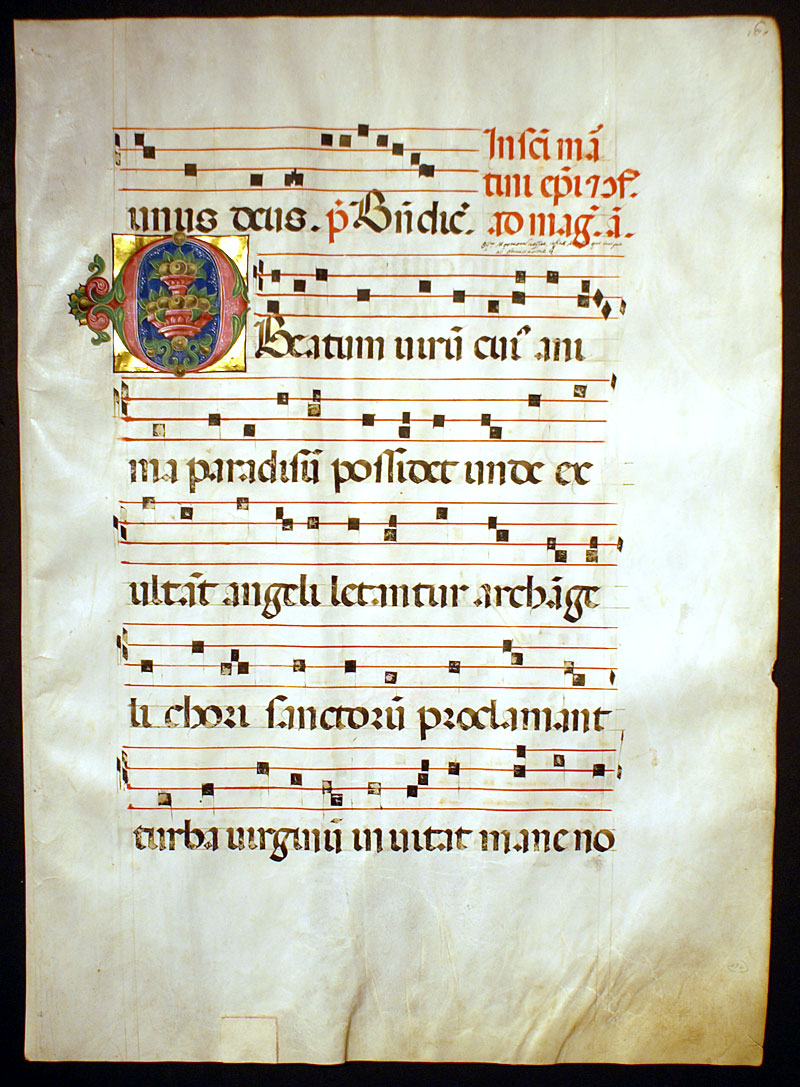 .6.
In sc̄i mā
tini ep̄i ⁊ ꝯf.
unus deus. p̄s Bn̄dic̄.
ad mag̃. ã.
O Beatum uirū cui᷒ ani
ma paradisū possidet unde ex
ultāt angeli letantur archāge
li chori sanctorū proclamant
turba uirginū inuitat mane no